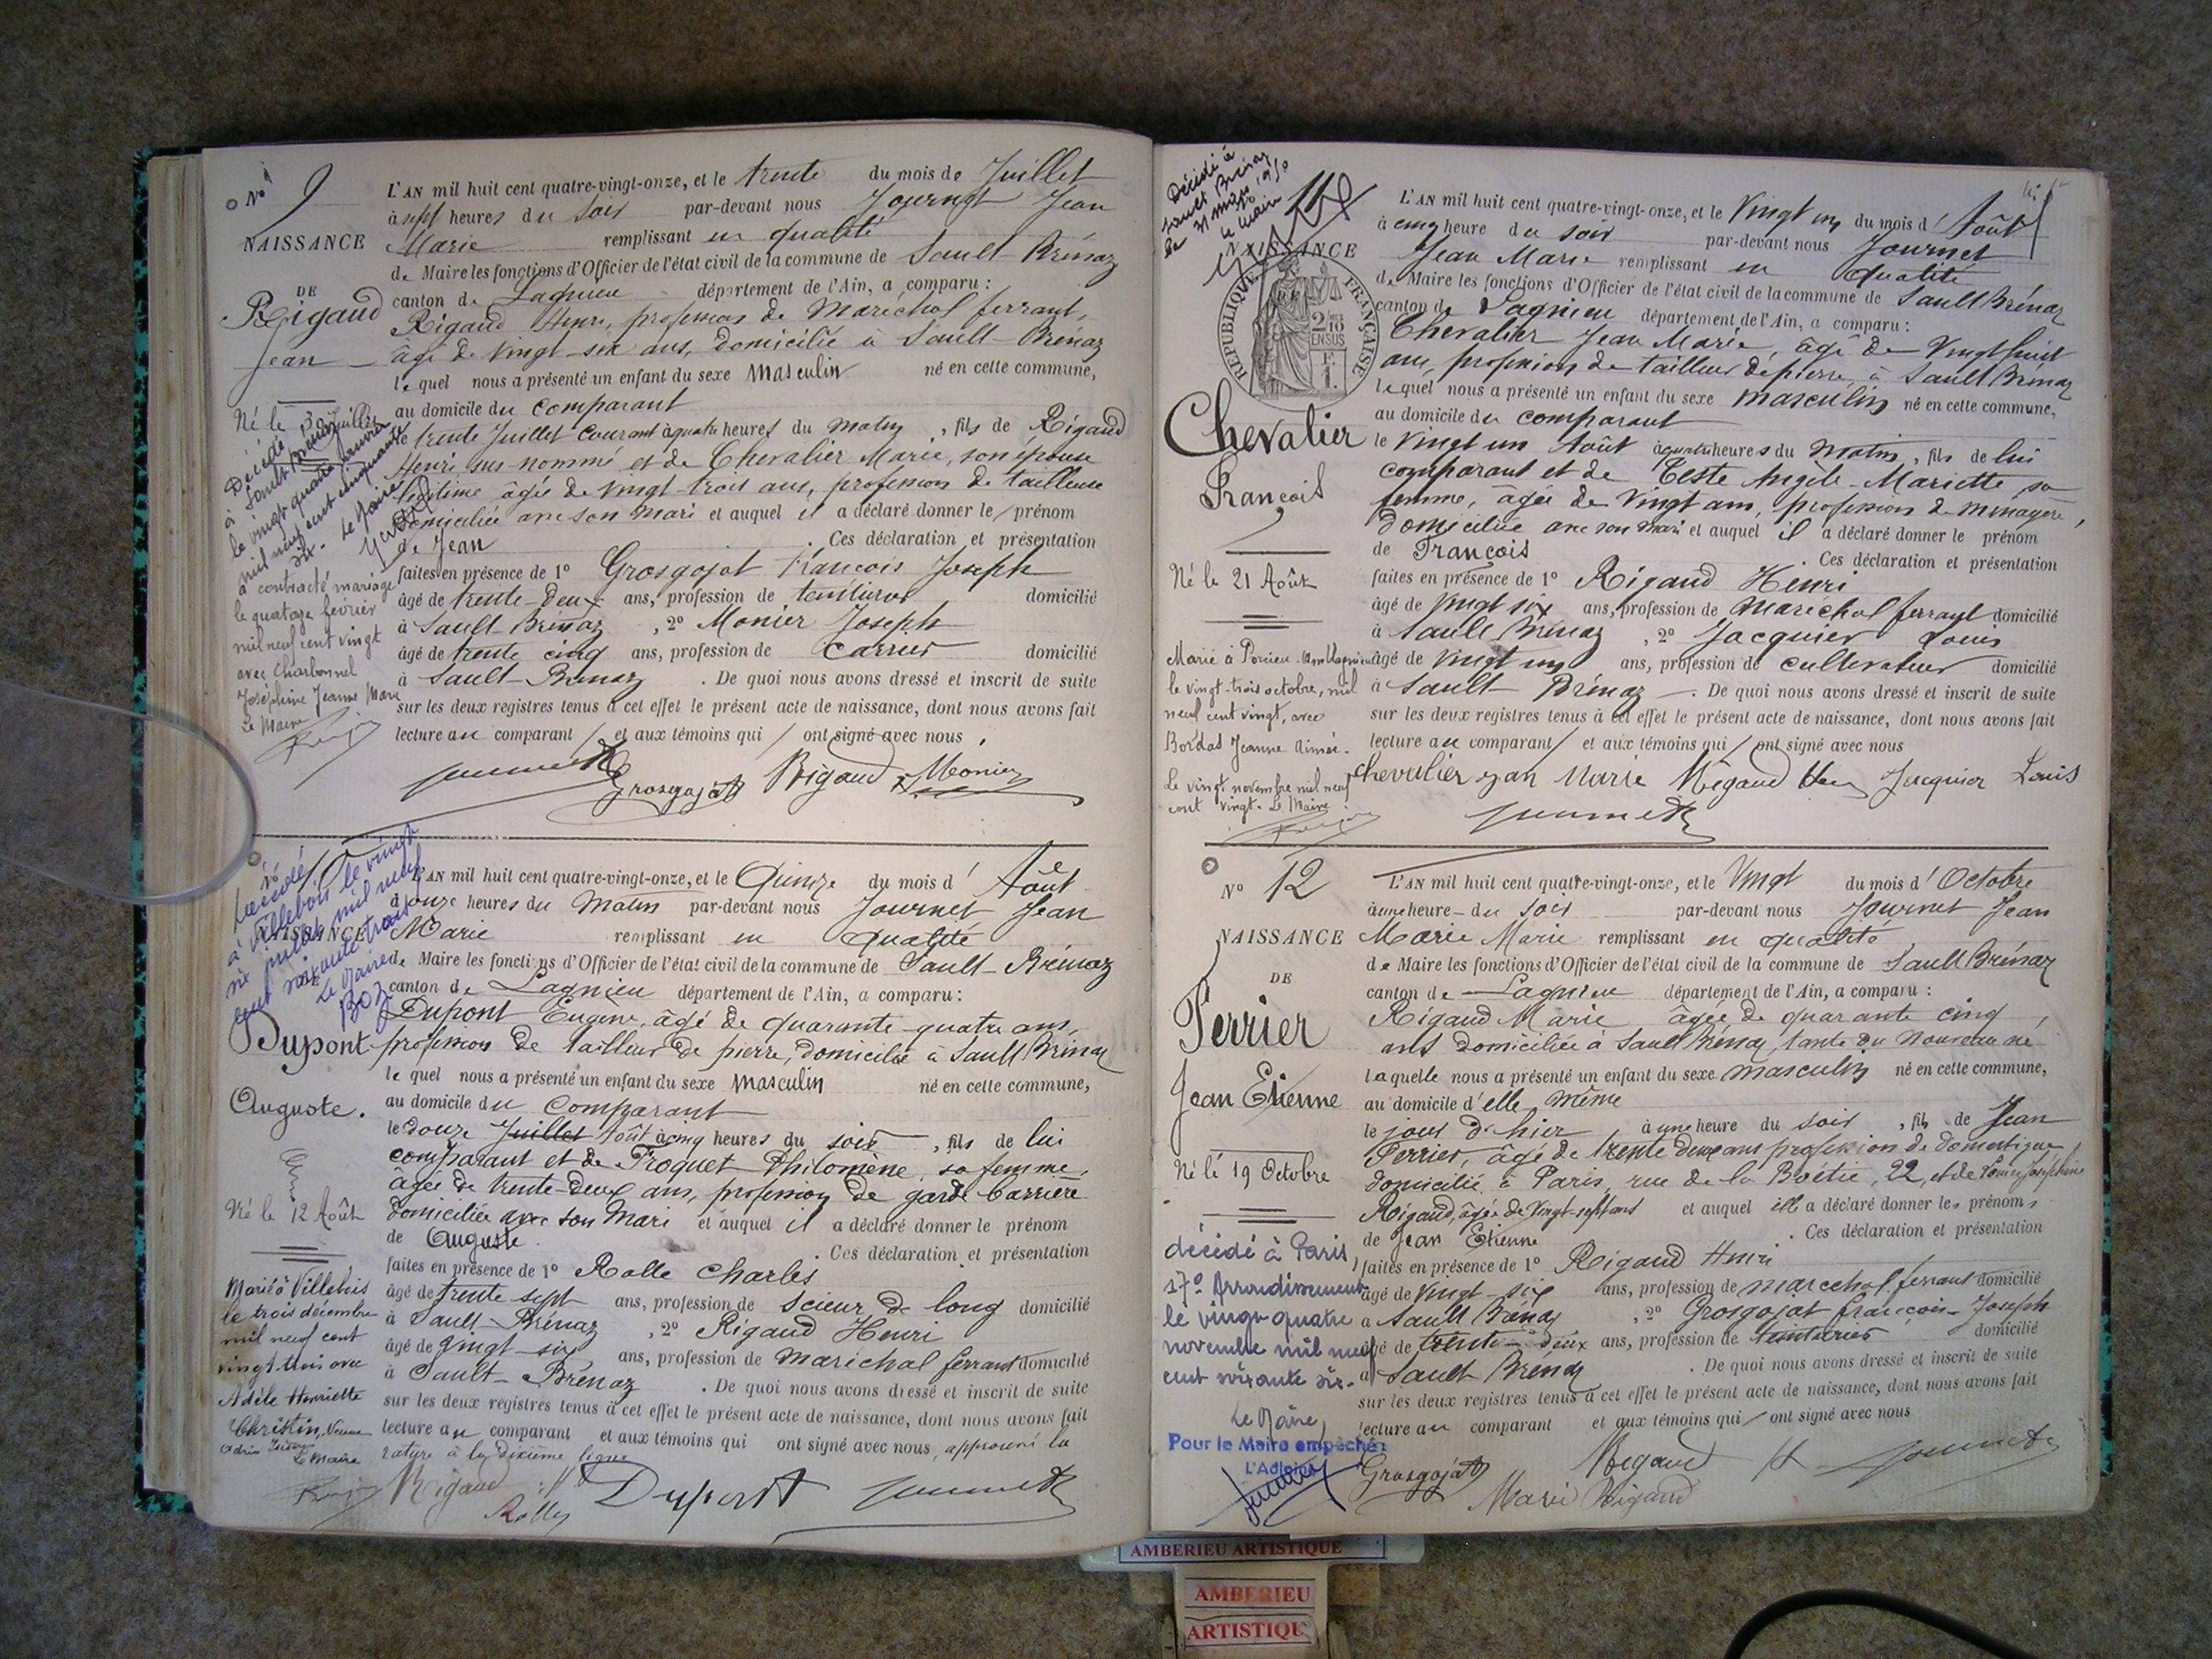 No 9
NAISSANCE
DE
Rigaud
Jean
Né le 30 Juillet
Décédé
à Sault-Brénaz
le vingt quatre janvier
mil neuf cent cinquante
six. Le Maire
a contracté mariage
le quatorze février
mil neuf cent vingt
avec Charbonnel
Joséphine Jeanne Marie
Le Maire
L'AN mil huit cent quatre-vingt-onze, et le trente du mois de Juillet
à sept heures du soir par-devant nous Journet Jean
Marie remplissant en qualité
de Maire les fonctions d'Officier de l'état civil de la commune de Sault-Brénaz
canton de Lagnieu département de l'Ain, a comparu :
Rigaud Henri, profession de Maréchal ferrant,
âgé de vingt-six ans, domicilié à Sault-Brénaz
lequel nous a présenté un enfant du sexe Masculin né en cette commune,
au domicile du comparant
le trente Juillet courant à quatre heures du matin, fils de Rigaud
Henri sus-nommé et de Chevalier Marie, son épouse
légitime âgée de vingt-trois ans, profession de tailleuse
domiciliée avec son mari et auquel il a déclaré donner le prénom
de Jean . Ces déclaration et présentation
faites en présence de 1° Grosgojat François Joseph
âgé de trente-deux ans, profession de teinturier domicilié
à Sault-Brénaz , 2° Monier Joseph
âgé de trente cinq ans, profession de Carrier domicilié
à Sault-Brénaz . De quoi nous avons dressé et inscrit de suite
sur les deux registres tenus à cet effet le présent acte de naissance, dont nous avons fait
lecture au comparant et aux témoins qui ont signé avec nous.
Grosgojat Rigaud Monier
No 10
NAISSANCE
Décédé
à Villebois le vingt
six juillet mil neuf
cent soixante trois
Le Maire
Dupont
Auguste.
Né le 12 Août
Marié à Villebois
le trois décembre
mil neuf cent
vingt-trois avec
Adèle Henriette
Christin, Veuve
Le Maire
L'AN mil huit cent quatre-vingt-onze, et le Quinze du mois d'Août
à onze heures du Matin par-devant nous Journet Jean
Marie remplissant en Qualité
de Maire les fonctions d'Officier de l'état civil de la commune de Sault-Brénaz
canton de Lagnieu département de l'Ain, a comparu :
Dupont Eugène, âgé de quarante-quatre ans,
profession de tailleur de pierre, domicilié à Sault Brénaz
lequel nous a présenté un enfant du sexe Masculin né en cette commune,
au domicile du Comparant
le douze Juillet Août à cinq heures du soir, fils de lui
comparant et de Froquet Philomène sa femme,
âgée de trente-deux ans, profession de garde barrière
domiciliée avec son Mari et auquel il a déclaré donner le prénom
de Auguste. . Ces déclaration et présentation
faites en présence de 1° Rolle Charles
âgé de trente sept ans, profession de scieur de long domicilié
à Sault-Brénaz , 2° Rigaud Henri
âgé de vingt-six ans, profession de maréchal ferrant domicilié
à Sault-Brénaz . De quoi nous avons dressé et inscrit de suite
sur les deux registres tenus à cet effet le présent acte de naissance, dont nous avons fait
lecture au comparant et aux témoins qui ont signé avec nous, approuvé la
rature à la dixième ligne
Rigaud Rolle Dupont
Décédé à
Sault Brénaz
le 31 mars 1950
Le Maire
11
NAISSANCE
REPUBLIQUE FRANÇAISE
Chevalier
François
Né le 21 Août
le vingt-trois octobre, mil
neuf cent vingt, avec
Bordas Jeanne Aimée.
Le vingt novembre mil neuf
cent vingt. Le Maire
L'AN mil huit cent quatre-vingt-onze, et le Vingt un du mois d'Août
à cinq heure du soir par-devant nous Journet
Jean Marie remplissant en Qualité
de Maire les fonctions d'Officier de l'état civil de la commune de Sault Brénaz
canton de Lagnieu département de l'Ain, a comparu :
Chevalier Jean Marie, âgé de Vingt huit
ans, profession de tailleur de pierre, à Sault Brénaz
lequel nous a présenté un enfant du sexe masculin né en cette commune,
au domicile du comparant
le Vingt un Août à quatre heures du Matin, fils de lui
comparant et de Teste Angèle-Mariette sa
femme, âgée de Vingt ans, profession de ménagère,
domiciliée avec son mari et auquel il a déclaré donner le prénom
de François . Ces déclaration et présentation
faites en présence de 1° Rigaud Henri
âgé de Vingt six ans, profession de Maréchal ferrant domicilié
à Sault Brénaz , 2° Jacquier Louis
âgé de Vingt un ans, profession de cultivateur domicilié
à Sault Brénaz . De quoi nous avons dressé et inscrit de suite
sur les deux registres tenus à cet effet le présent acte de naissance, dont nous avons fait
lecture au comparant et aux témoins qui ont signé avec nous
chevalier jean Marie Rigaud Jacquier Louis
No 12
NAISSANCE
DE
Perrier
Jean Etienne
Né le 19 Octobre
décédé à Paris,
17e Arrondissement
le vingt-quatre
novembre mil neuf
cent soixante six.
Le Maire,
Pour le Maire empêché :
L'Adjoint
L'AN mil huit cent quatre-vingt-onze, et le Vingt du mois d'Octobre
à une heure du soir par-devant nous Journet Jean
Marie Marie remplissant en qualité
de Maire les fonctions d'Officier de l'état civil de la commune de Sault Brénaz
canton de Lagnieu département de l'Ain, a comparu :
Rigaud Marie âgée de quarante cinq
ans domiciliée à Sault Brénaz, tante du Nouveau né
laquelle nous a présenté un enfant du sexe masculin né en cette commune,
au domicile d'elle même
le jour d'hier, à une heure du soir, fils de Jean
Perrier, âgé de trente deux ans profession de domestique,
domicilié à Paris, rue de la Boétie, 22, et de Joséphine
Rigaud, âgée de Vingt-sept ans et auquel elle a déclaré donner les prénoms
de Jean Etienne . Ces déclaration et présentation
faites en présence de 1° Rigaud Henri
âgé de vingt-six ans, profession de marechal ferrant domicilié
à Sault Brénaz , 2° Grosgojat François-Joseph
âgé de trente-deux ans, profession de teinturier domicilié
à Sault Brénaz . De quoi nous avons dressé et inscrit de suite
sur les deux registres tenus à cet effet le présent acte de naissance, dont nous avons fait
lecture au comparant et aux témoins qui ont signé avec nous
Grosgojat Rigaud H
Marie Rigaud
AMBERIEU ARTISTIQUE
AMBERIEU
ARTISTIQU